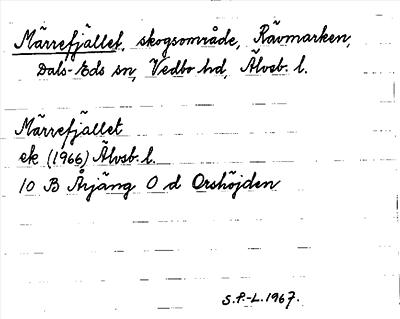 Märrefjället, skogsområde, Rävmarken,
Dals-Eds sn, Vedbo hd, Älvsb. l.
Märrefjället
ek (1966) Älvsb. l.
10 B Årjäng O d Orshöjden
S.F.-L. 1967.